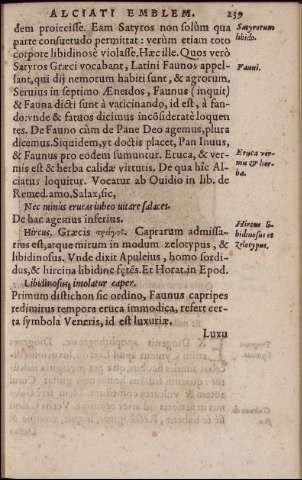 ALCIATI EMBLEM. 239
dem proiecisse. Eam Satyros non solùm qua
parte consuetudo permittat: verùm etiam toto
corpore libidinosè violasse. Hæc ille. Quos verò
Satyros Græci vocabant, Latini Faunos appel-
lant, qui dij nemorum habiti sunt, & agrorum.
Seruius in septimo Æneidos, Faunus (inquit)
& Fauna dicti sunt à vaticinando, id est, à fan-
do: vnde & fatuos dicimus incōsideratè loquen
tes. De Fauno cùm de Pane Deo agemus, plura
dicemus. Siquidem, yt doctis placet, Pan Inuus,
& Faunus pro eodem sumuntur. Eruca, & ver-
mis est & herba calidæ virtutis. De qua hîc Al-
ciatus loquitur. Vocatur ab Ouidio in lib. de
Remed. amo. Salax, sic,
Nec minùs erucas iubeo vitare salaces.
De hac agemus inferius.
Hircus, Græcis τράγος. Caprarum admissa-
rius est, atque mirum in modum zelotypus, &
libidinosus. Vnde dixit Apuleius, homo sordi-
dus, & hircina libidine fętēs. Et Horat. in Epod.
Libidinosus, imolatur caper.
Primum distichon sic ordino, Faunus capripes
redimitus tempora eruca immodica, refert cer-
ta symbola Veneris, id est luxuriæ.
Luxu
Satyrorum
libido.
Fauni.
Eruca ver-
mis & her-
ba.
Hircus li-
bidinosus et
zelotypus.